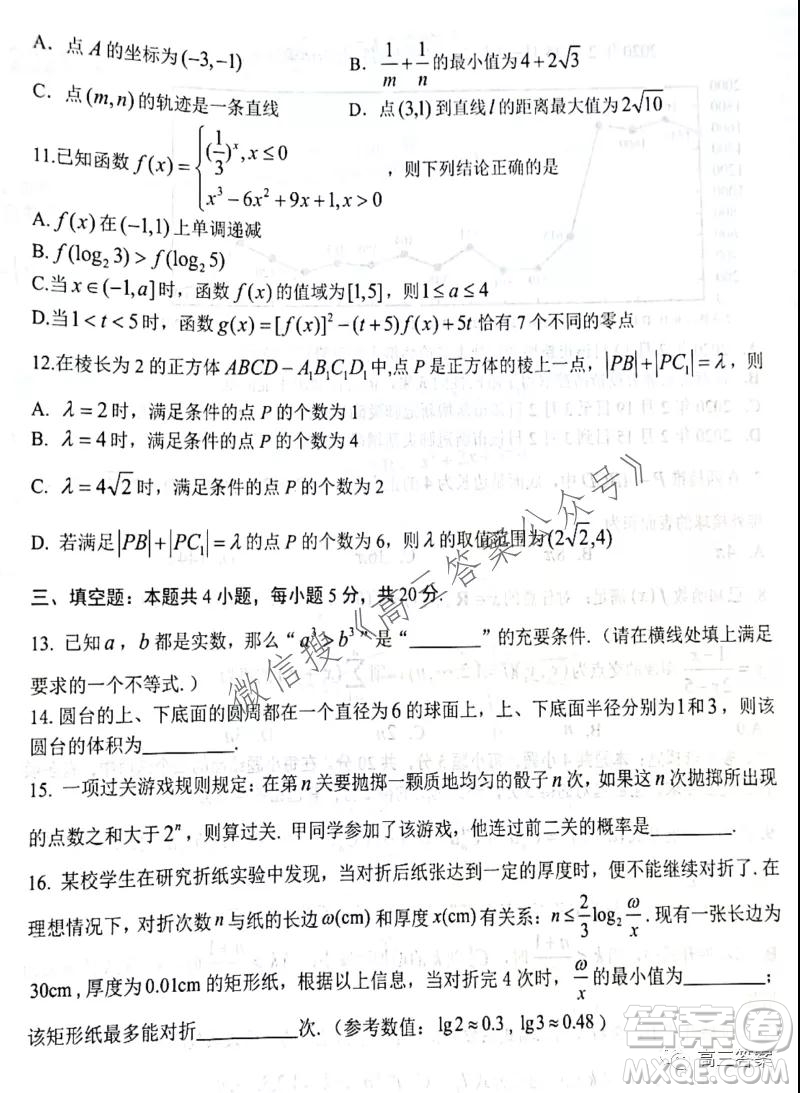 A．点 A 的坐标为(−3,−1)
B．1/m + 1/n 的最小值为4+2√3
C．点(m,n)的轨迹是一条直线
D．点(3,1)到直线l的距离最大值为2√10
11.已知函数 f(x)= { (1/3)^x, x≤0 ; x³−6x²+9x+1, x>0 ，则下列结论正确的是
A. f(x)在(−1,1)上单调递减
B. f(log₂3)>f(log₂5)
C.当 x∈(−1,a]时，函数 f(x)的值域为[1,5]，则1≤a≤4
D.当1<t<5时，函数g(x)=[f(x)]²−(t+5)f(x)+5t 恰有7个不同的零点
12.在棱长为2的正方体 ABCD−A₁B₁C₁D₁中,点 P 是正方体的棱上一点，|PB|+|PC₁|=λ，则
A. λ=2时，满足条件的点 P 的个数为1
B. λ=4时，满足条件的点 P 的个数为4
C. λ=4√2时，满足条件的点 P 的个数为2
D. 若满足|PB|+|PC₁|=λ的点 P 的个数为6，则λ的取值范围为(2√2,4)
三、填空题：本题共4小题，每小题5分，共20分.
13. 已知a，b都是实数，那么“a³>b³”是“______”的充要条件.（请在横线处填上满足
要求的一个不等式.）
14. 圆台的上、下底面的圆周都在一个直径为6的球面上，上、下底面半径分别为1和3，则该
圆台的体积为________.
15. 一项过关游戏规则规定：在第n关要抛掷一颗质地均匀的骰子n次，如果这n次抛掷所出现
的点数之和大于2ⁿ，则算过关. 甲同学参加了该游戏，他连过前二关的概率是________.
16. 某校学生在研究折纸实验中发现，当对折后纸张达到一定的厚度时，便不能继续对折了.在
理想情况下，对折次数n与纸的长边ω(cm)和厚度x(cm)有关系：n≤2/3 log₂ ω/x.现有一张长边为
30cm，厚度为0.01cm的矩形纸，根据以上信息，当对折完4次时，ω/x的最小值为________；
该矩形纸最多能对折________次.（参考数值：lg2≈0.3，lg3≈0.48）
微信搜《高三答案公众号》
答案圈
高三答案
MXQE.COM